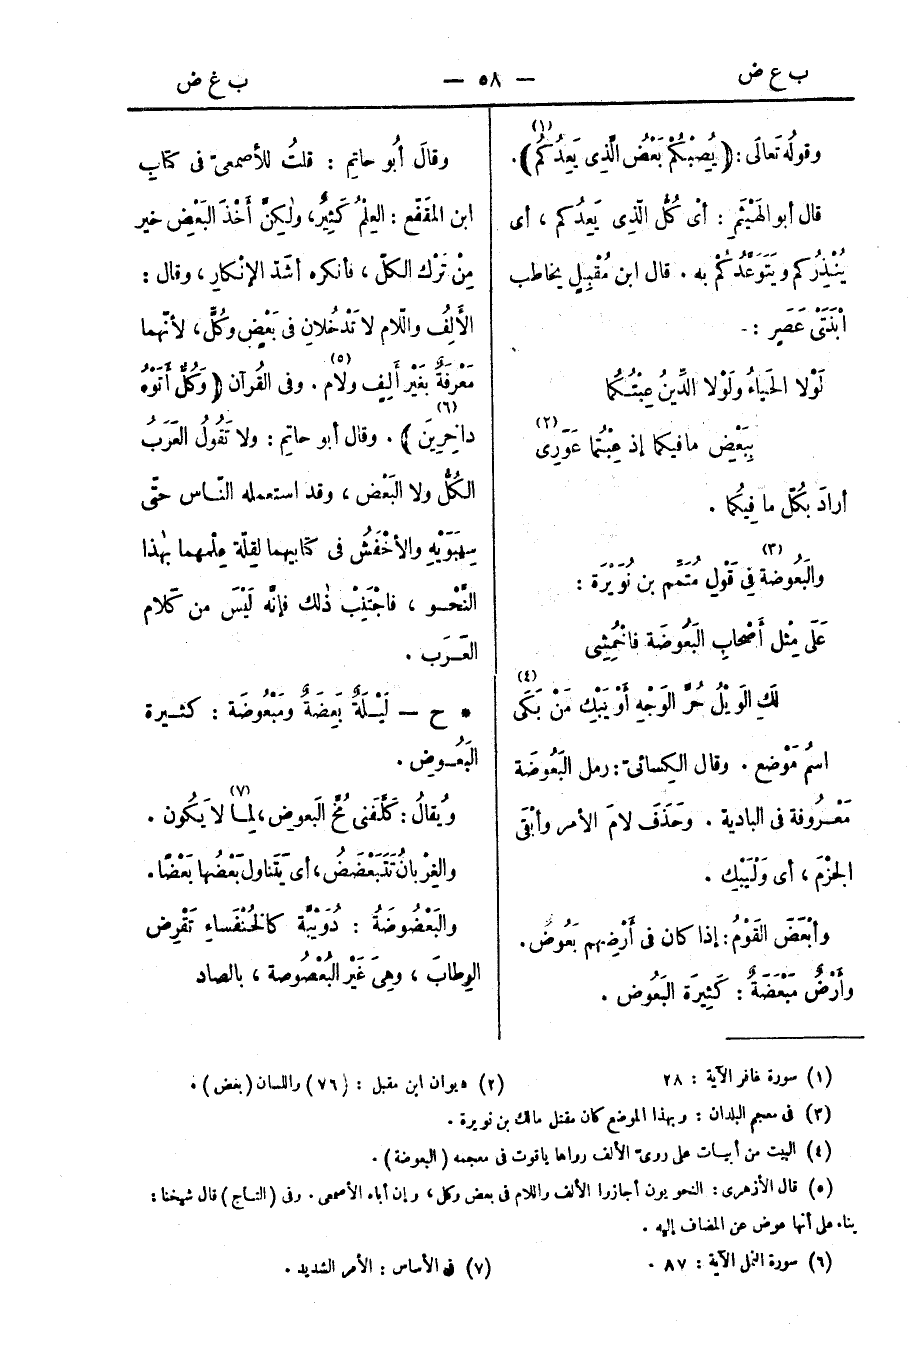 ب ع ض
— ٥٨ —
ب غ ض
وقولُه تَعالَى: ﴿ يُصِبْكُمْ بَعْضُ الَّذِى يَعِدُكُمْ ﴾(١).
قال أبو الهَيْثَمِ : أىْ كُلُّ الّذِى يَعِدُكم ، أى
يُنْذِرُكم ويَتَوَعَّدُكُمْ به . قال ابن مُقْبِلٍ يخاطب
ابْنَتَىْ عَصَرٍ : -
لَوْلا الحَياءُ ولَوْلا الدِّينُ عِبْتُـكُما
بِبَعْضِ ما فيكما إذ عِبْتُما عَوَرِى (٢)
أرادَ بكُلّ ما فِيكُما .
والبَعُوضة (٣) فِي قَوْلِ مُتَمِّم بن نُوَيْرَة :
عَلَى مِثْل أَصْحابِ البَعُوضَة فاخْمِشِى
لَكِ الوَيْلُ حُرَّ الوَجْهِ أوْ يَبْكِ مَنْ بَكَى (٤)
اسمُ مَوْضع . وقال الكِسائىّ : رمل البَعُوضَة
مَعْـرُوفة فى البادية . وحَذَفَ لامَ الأمر وأَبْقَى
الجَزْمَ ، أى وَلْيَبْكِ .
وأبْعَضَ القَوْمُ : إذا كان فى أَرْضِهم بَعُوض .
وأَرْضٌ مَبْعَضَةٌ : كَثِيرَة البَعُوض .
وقالَ أبُو حاتِم : قلتُ للأصمعىّ فى كتابِ
ابن المقَفَّع : العِلْمُ كَثِيرٌ، ولٰكِنَّ أَخْذَ البَعْضِ خير
مِنْ تَرْك الكلّ ، فأنكره أشَدَّ الإنْكارِ ، وقال :
الأَلِفُ واللّام لا تَدْخُلانِ فى بَعْضٍ وكُلٍّ ، لأنّهما
مَعْرِفَةٌ بغَيْر أَلِفٍ ولام (٥) . وفى القُرآن ﴿ وَكُلٌّ أَتَوْهُ
داخِرِينَ ﴾ (٦) . وقال أبو حاتِم : ولا تَقُولُ العَرَبُ
الكُلُّ ولا البَعْض ، وقد استعمله النّاس حتّى
سِيبَوَيْهِ والأخْفَشُ فى كتابيهما لقِلّة عِلْمهما بهٰذا
النَّحْـو ، فاجْتَنِبْ ذٰلك فإنَّه لَيْسَ من كَلام
العَـرَب .
* ح — لَيْـلَةٌ بَعِضَةٌ ومَبْعُوضَة : كثـيرة
البَعُـوضِ .
ويُقالُ : كَلَّفَنى مُخَّ البَعوضِ ، لِمـا لا يَكُون (٧) .
والغِرْبانُ تَتَبَعْضَضُ ، أى يَتَناول بَعْضُها بَعْضًا .
والبُعْضُوضَةُ : دُوَيْبَّة كالخُنْفَساءِ تَقْرِض
الوِطابَ ، وهِىَ غَيْر البُعْصُوصة ، بالصاد
(١) سورة غافر الآية : ٢٨
(٢) ديوان ابن مقبل : (٧٦) واللسان (بعض) .
(٣) فى معجم البلدان : وبهذا الموضع كان مقتل مالك بن نويرة .
(٤) البيت من أبيات على روىّ الألف رواها ياقوت فى معجمه (البعوضة) .
(٥) قال الأزهرى : النحويون أجازوا الألف واللام فى بعض وكل ، وإن أباه الأصمعى . وفى (التـاج) قال شيخنا :
بناء على أنها عوض عن المضاف إليه .
(٦) سورة النمل الآية : ٨٧ .
(٧) فى الأساس : الأمر الشديد .